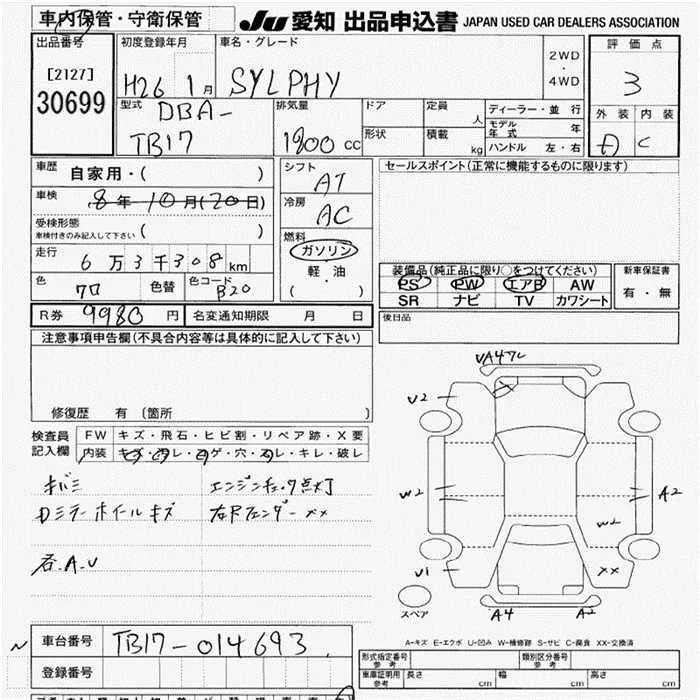 車内保管・守衛保管
JU 愛知 出品申込書 JAPAN USED CAR DEALERS ASSOCIATION
出品番号
[2127]
30699
初度登録年月
H26 1月
車名・グレード
SYLPHY
2WD
・
4WD
評価点
3
型式
DBA-
TB17
排気量
1800 cc
ドア
形状
定員
人
積載
kg
ディーラー・並 行
モデル
年 式
年
ハンドル 左・右
外装 内装
D C
車歴
自家用・( )
車検
8年10月(20日)
受検形態
車検付きのみ記入して下さい
( )
走行
6万3千308km
色
クロ
色替
色コード
B20
シフト
AT
冷房
AC
燃料
ガソリン
軽 油
・
( )
セールスポイント(正常に機能するものに限ります)
装備品(純正品に限り○をつけてください)
PS PW エアB AW
SR ナビ TV カワシート
新車保証書
有・無
R券 9980 円
名変通知期限 月 日
後日品
注意事項申告欄(不具合内容等は具体的に記入して下さい)
修復歴 有 [箇所 ]
検査員
記入欄
FW キズ・飛石・ヒビ割・リペア跡・X要
内装 キズ・汚レ・コゲ・穴・スレ・キレ・破レ
キバミ
エンジンチェック点灯
カミラー ホイールキズ
右Rフェンダー××
各.A.U
U2
W2
U1
A2
W2
××
A4
A2
スペア
A-キズ E-エクボ U-凹み W-補修跡 S-サビ C-腐食 XX-交換済
車台番号
TB17-014693
登録番号
形式指定番号
参考
類別区分番号
参考
車庫証明用
参考
長さ
cm
幅
cm
高さ
cm